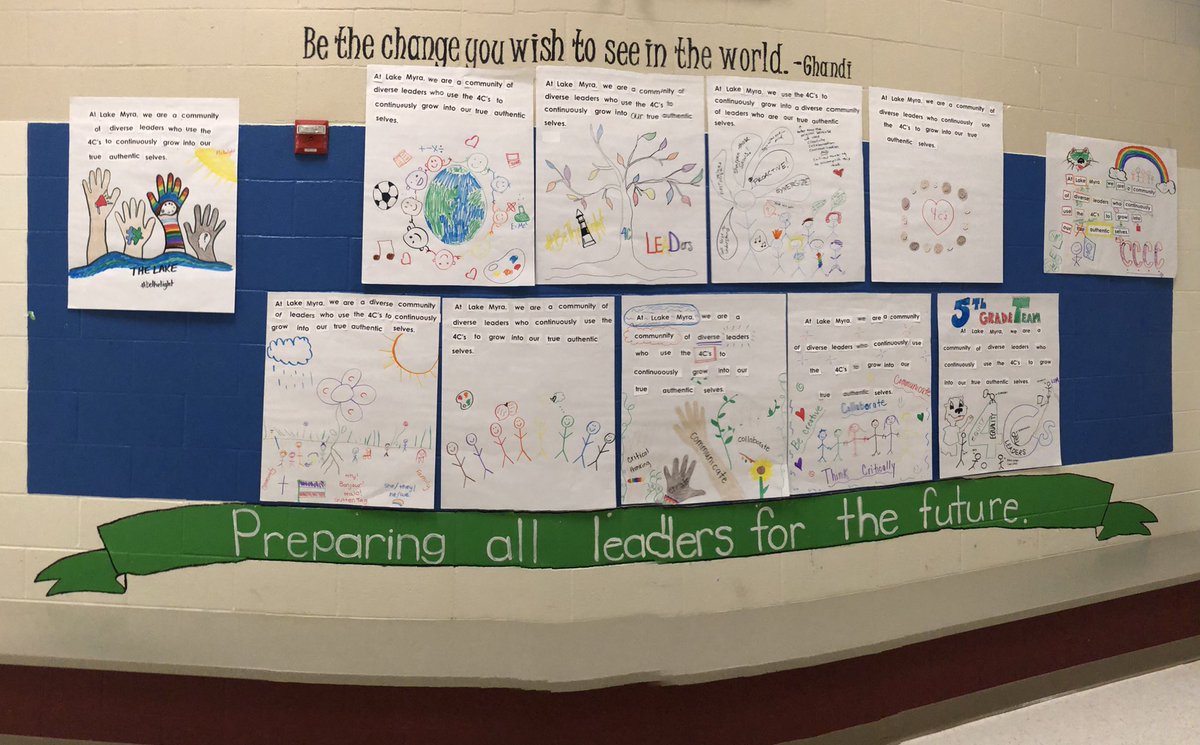 Be the change you wish to see in the world. -Ghandi
At Lake Myra, we are a community
of diverse leaders who use the
4C's to continuously grow into our
true authentic selves.
THE LAKE
#bethelight
At Lake Myra, we are a community of
diverse leaders who use the 4C's to
continuously grow into our true authentic
selves.
At Lake Myra, we are a community of
diverse leaders who use the 4C's to
continuously grow into our true authentic
selves.
LEaDers
At Lake Myra, we use the 4C's to
continuously grow into a diverse community
of leaders who are our true authentic
selves.
PROACTIVE!
SYNERGIZE
At Lake Myra, we are a community of
diverse leaders who continuously use
the 4C's to grow into our true
authentic selves.
4Cs
At Lake Myra, we are a community
of diverse leaders who continuously
use the 4C's to grow into
our true authentic selves.
CCCC
At Lake Myra, we are a diverse community
of leaders who use the 4C's to continously
grow into our true authentic selves.
C C C C
Hey!
Bonjour
Hola!
Guten Tag
She/they/
he/we
At Lake Myra, we are a community of
diverse leaders who continuously use the
4C's to grow into our true authentic
selves.
At Lcake Myra, we are a
community of diverse leaders
who use the 4C's to
continuously grow into our
true authentic selves.
critical
thinking
communicate
collaborate
At Lake Myra, we are a community
of diverse leaders who continuously use
the 4C's to grow into our
true authentic selves.
Communicate
Collaborate
Be creative
Think Critically
5TH
GRADE TEAM
At Lake Myra, we are a
community of diverse leaders who
continuously use the 4C's to grow
into our true authentic selves.
EQUALITY
LEADERS
Preparing all leaders for the future.